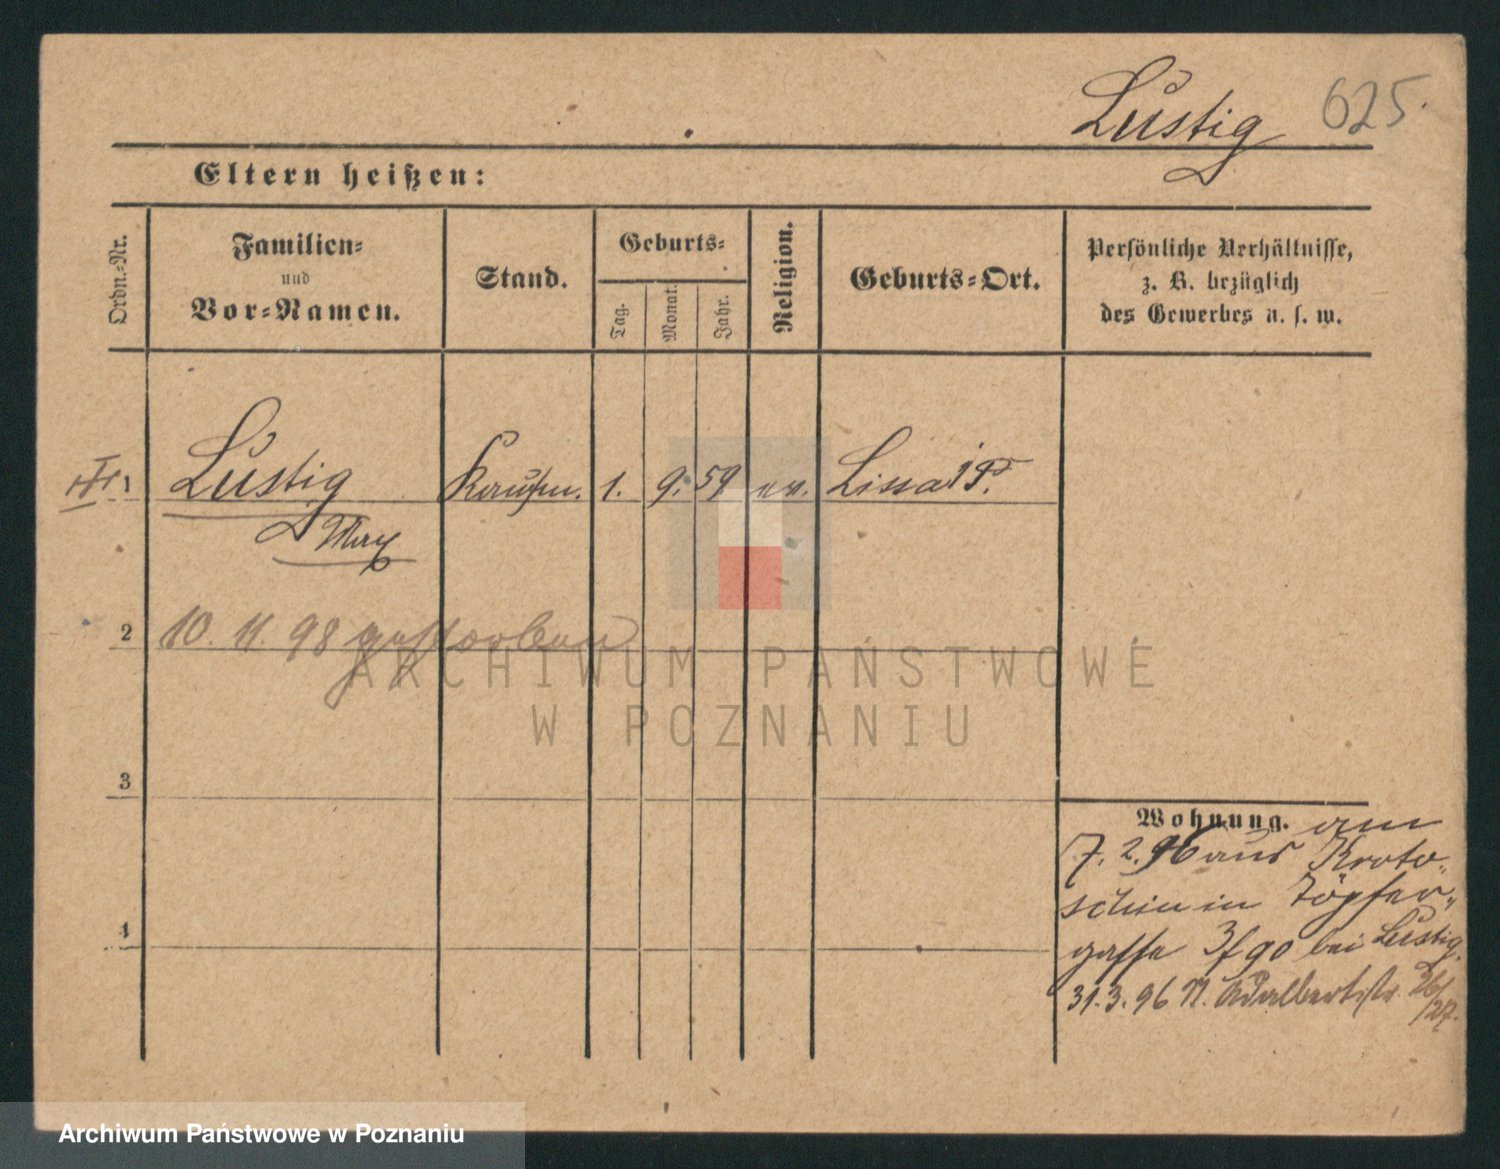 Lustig 625.
Eltern heißen:
Ordn.-Nr.
Familien-
und
Vor-Namen.
Stand.
Geburts-
Tag.
Monat.
Jahr.
Religion.
Geburts-Ort.
Persönliche Verhältnisse,
z. B. bezüglich
des Gewerbes u. s. w.
III 1 Lustig Kaufm. 1. 9. 59 ev. Lissa i P.
Max
2 10. 11. 98 gestorben
ARCHIWUM PAŃSTWOWE
W POZNANIU
3
Wohnung. am
7. 2. 96 aus Kroto-
schin in Töpfer-
gasse 3 bei Lustig.
4
31. 3. 96 n. Adalbertstr. 26/
27.
Archiwum Państwowe w Poznaniu